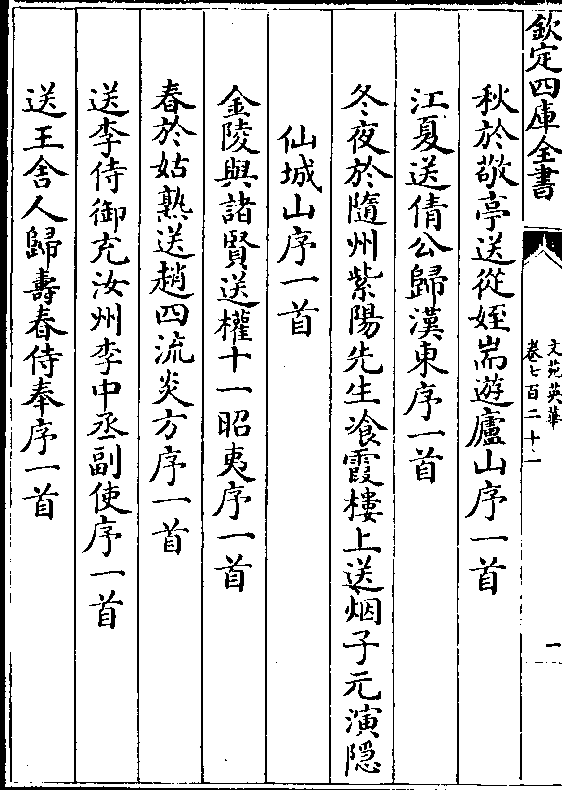 欽定四庫全書
文苑英華
卷七百二十
一
秋於敬亭送從姪耑遊廬山序一首
江夏送倩公歸漢東序一首
冬夜於隨州紫陽先生飡霞樓上送烟子元演隱
仙城山序一首
金陵與諸賢送權十一昭夷序一首
春於姑熟送趙四流炎方序一首
送李侍御充汝州李中丞副使序一首
送王舍人歸壽春侍奉序一首